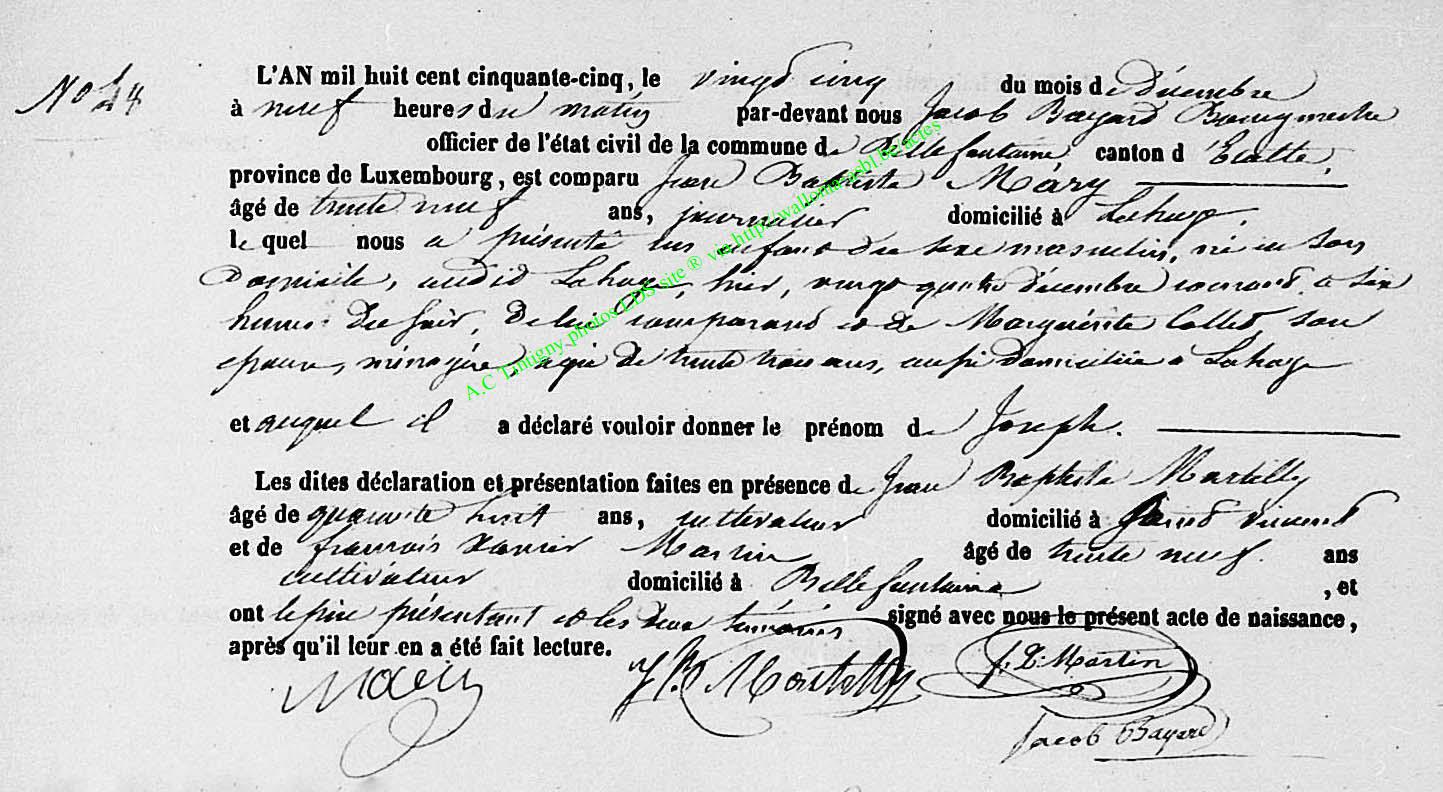 No 48
L'AN mil huit cent cinquante-cinq, le vingt cinq du mois de décembre
à neuf heures du matin par-devant nous Jacob Bayard Bourgmestre
officier de l'état civil de la commune de Bellefontaine, canton d'Etalle,
province de Luxembourg, est comparu Jean Baptiste Máry
âgé de trente neuf ans, journalier domicilié à Lahage,
le quel nous a présenté un enfant du sexe masculin, né en son
domicile, audit Lahage, hier, vingt quatre décembre courant, à six
heures du soir, de lui comparant et de Marguérite Collet, son
épouse, ménagère, agée de trente trois ans, aussi domiciliée à Lahage
et auquel il a déclaré vouloir donner le prénom de Joseph.
Les dites déclaration et présentation faites en présence de Jean Baptiste Martilly
âgé de quarante huit ans, cultivateur domicilié à Saint Vincent
et de françois Xavier Martin âgé de trente neuf ans
cultivateur domicilié à Bellefontaine, et
ont le père présentant et les deux témoins signé avec nous le présent acte de naissance,
après qu'il leur en a été fait lecture.
J B Martilly
f. X. Martin
Jacob Bayard
A.C Tintigny photos LDS site ® via http://wallonia-asbl.be/actes